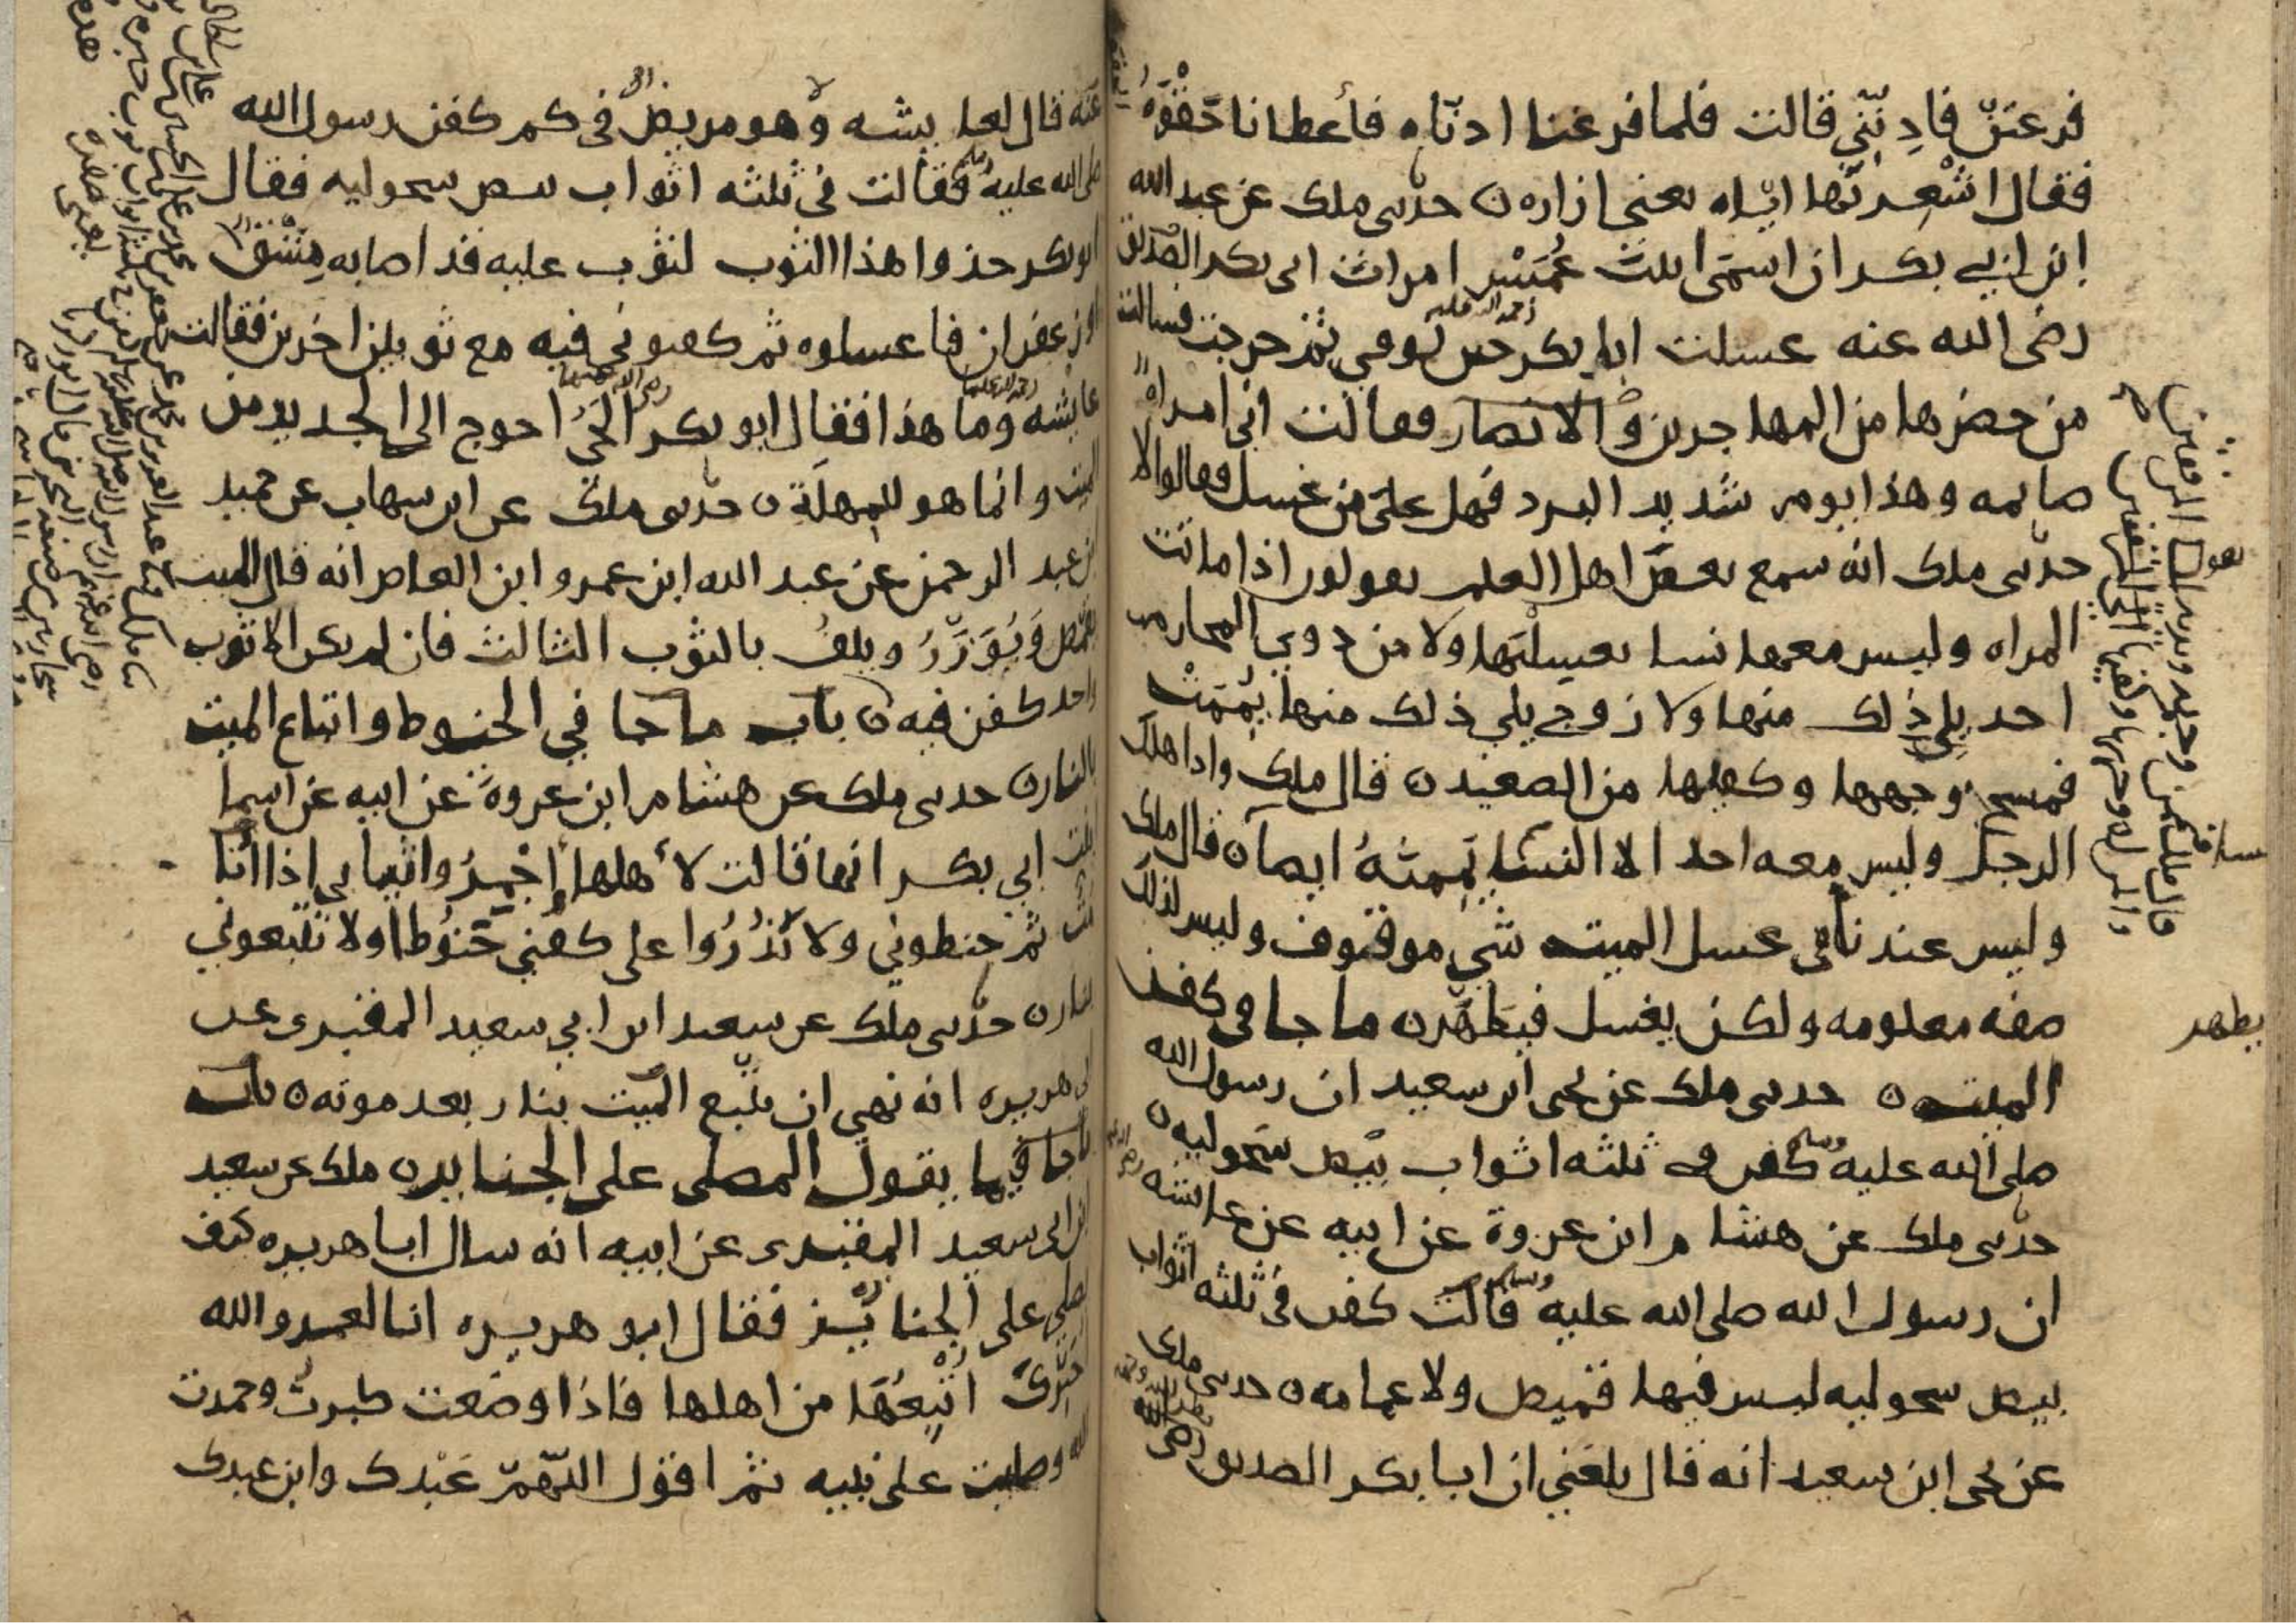 فرغتن فاذنني قالت فلما فرغنا اذناه فأعطانا حقوه
فقال اشعرنها اياه يعني ازاره ن حدثني ملك عن عبد الله
ابن ابي بكر ان اسمى ابنت عميس امرات ابي بكر الصديق
رضى الله عنه غسلت ابا بكر رحمه الله عليه حين توفي ثم خرجت فسالت
من حضرها من المهاجرين والانصار فقالت اني امراه
صايمه وهذا يوم شديد البرد فهل علي من غسل فقالوا لا
حدثني ملك انه سمع بعض اهل العلم يقولون اذا ماتت
المراه وليس معها نسا يغسلنها ولا من ذوي المحارم
احد يلي ذلك منها ولا زوج يلي ذلك منها يممت
فمسح وجهها وكفيها من الصعيد ن قال ملك واذا هلك
الرجل وليس معه احد الا النسا يممنه ايضا ن قال ملك
وليس عندنا في غسل الميت شي موقوف وليس لذلك
صفه معلومه ولكن يغسل فيطهر ن ما جا في كفن
الميت ن حدثني ملك عن يحيى ابن سعيد ان رسول الله
صلى الله عليه وسلم كفن في ثلثه اثواب بيض سحوليه ن
حدثني ملك عن هشام ابن عروة عن ابيه عن عايشه رضي الله
ان رسول الله صلى الله عليه وسلم قالت كفن في ثلثه اثواب
بيض سحوليه ليس فيها قميص ولا عمامه ن حدثني ملك
عن يحيى ابن سعيد انه قال بلغني ان ابا بكر الصديق رضي الله
يطهر
عنه قال لعايشه وهو مريض في كم كفن رسول الله
صلى الله عليه وسلم فقالت في ثلثه اثواب بيض سحوليه فقال
ابو بكر خذوا هذا الثوب لثوب عليه قد اصابه مشق
او زعفران فاغسلوه ثم كفنوني فيه مع ثوبين اخرين فقالت
عايشه رحمه الله عليها وما هذا فقال ابو بكر رضي الله عنهما الحي احوج الى الجديد من
الميت وانما هو للمهلة ن حدثني ملك عن ابن شهاب عن حميد
ابن عبد الرحمن عن عبد الله ابن عمرو ابن العاص انه قال الميت
يقمص ويؤزر ويلف بالثوب الثالث فان لم يكن الا ثوب
واحد كفن فيه ن باب ما جا في الحنوط واتباع الميت
بالنار ن حدثني ملك عن هشام ابن عروة عن ابيه عن اسما
ابنت ابي بكر انها قالت لأهلها اجمروا ثيابي اذا انا
مت ثم حنطوني ولا تذروا على كفني حنوطا ولا تتبعوني
بنار ن حدثني ملك عن سعيد ابن ابي سعيد المقبري عن
ابي هريره انه نهي ان يتبع الميت بنار بعد موته ن باب
ما جا فيما يقول المصلي على الجنايز ن ملك عن سعيد
ابن ابي سعيد المقبري عن ابيه انه سال ابا هريره كيف
يصلي على الجنايز فقال ابو هريره انا لعمرو الله
اخبرك اتبعها من اهلها فاذا وضعت كبرت وحمدت
الله وصليت على نبيه ثم اقول اللهم عبدك وابن عبدك